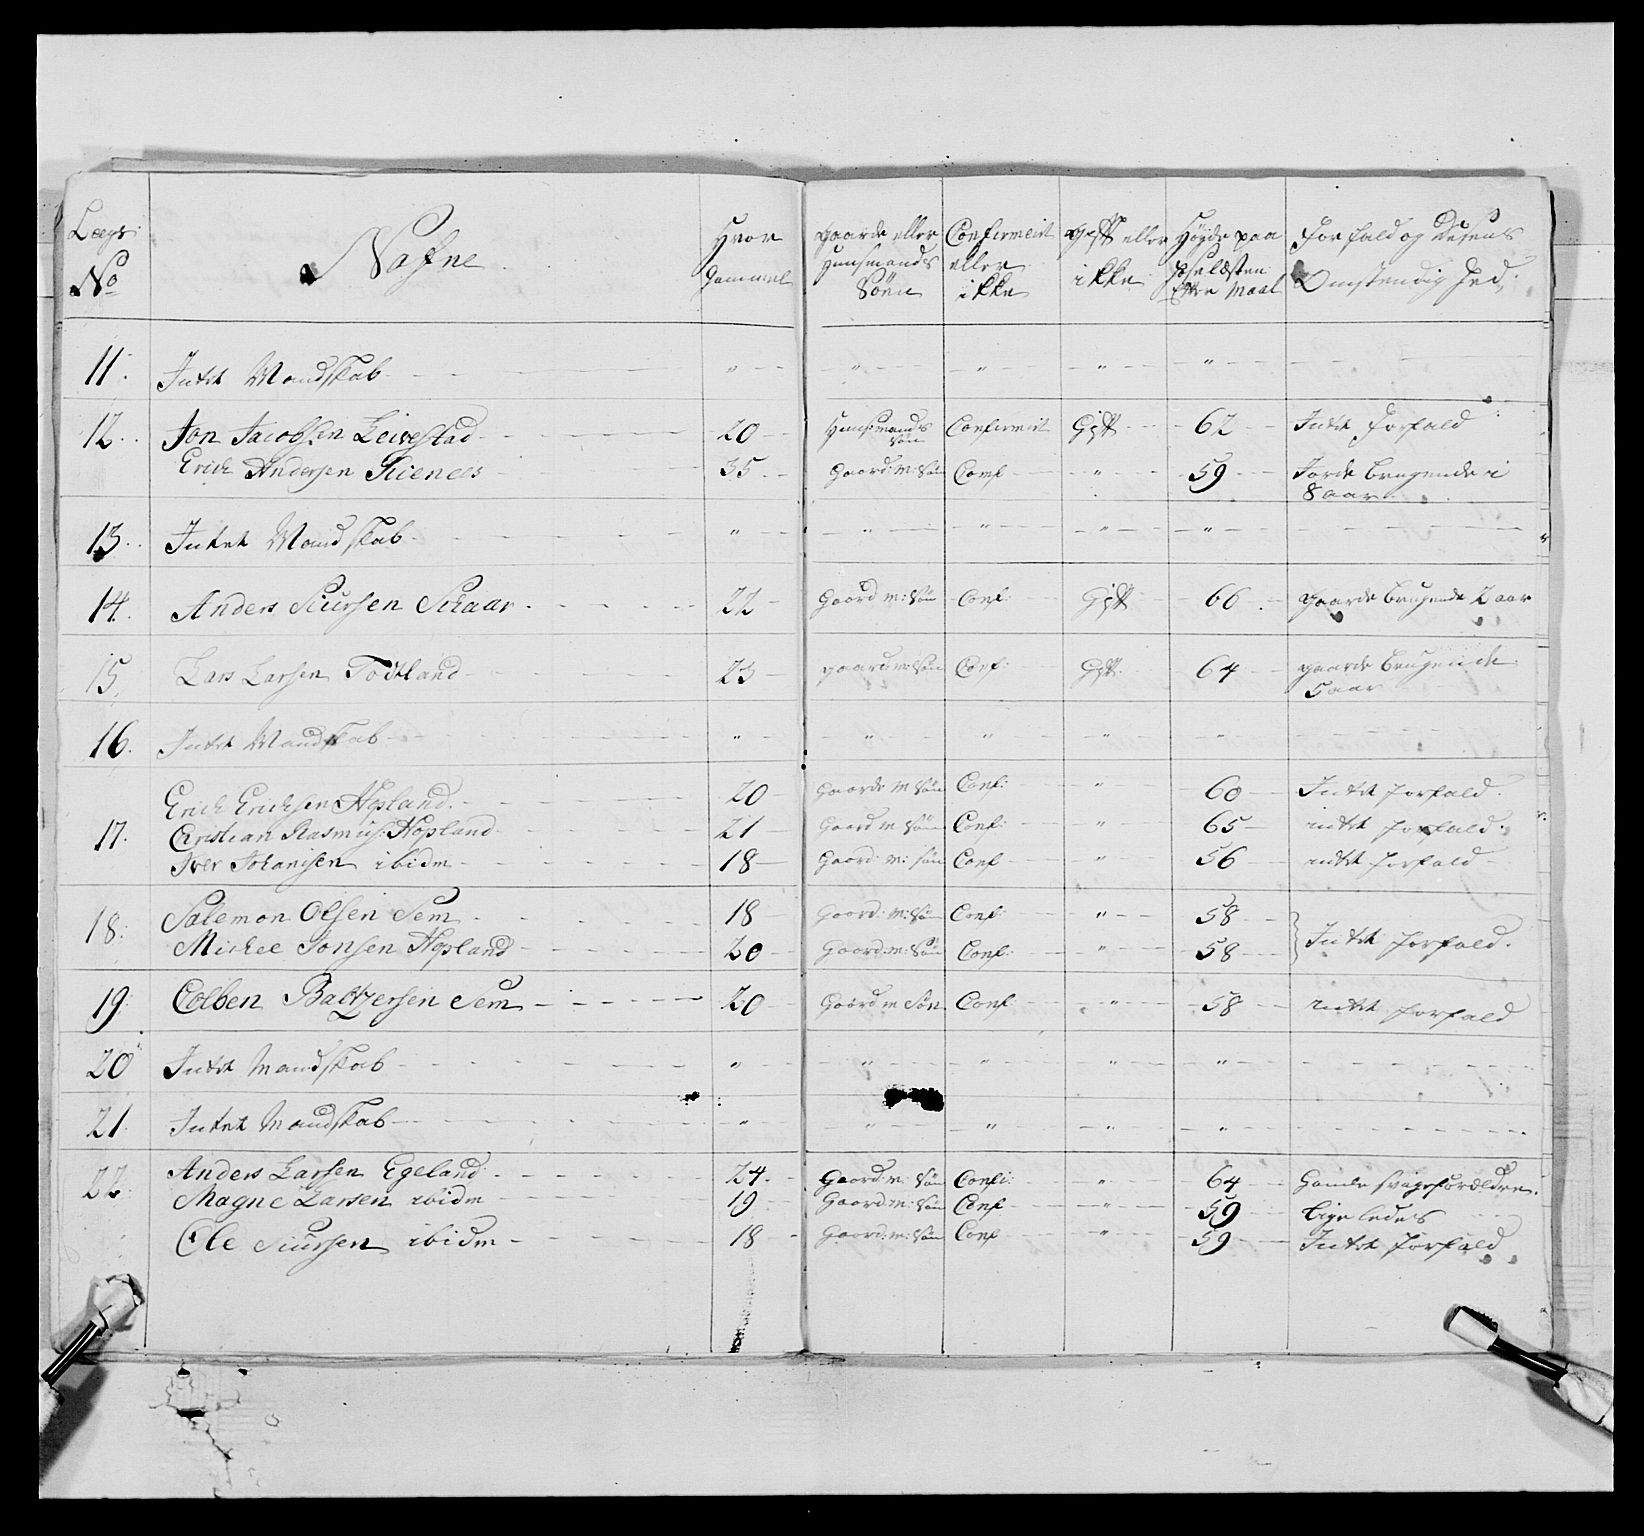 Lægs No | Nafne | Hvor Gammel | gaarde eller Huusmands Søen | Confirmeret eller ikke | gift eller ikke | Høyde paa Efter Maal | Forfald og Omstendighed
11. Intet Mandskab " " " " "
12. Jon Jacobsen Leivestad 20 Huusmands Søn Confirmert Gift 62 Intet Forfald
Erich Andersen 35 Gaord: M: Søn Conf " 59 Jorde brugende i 8 aar
13. Intet Mandskab " " " " "
14. Anders Siursen Schaar 22 Gaord M: Søn Conf: Gift 66 gaarde brugende 2 aar
15 Lars Larsen Todtland 23 gaard M: Søn Conf: Gift 64 gaarde brugende 5 aar
16. Intet Mandskab " " " " "
17. Erich Erichsen Hopland 20 Gaarde M Søn Conf: " 60 Intet forfald
Christian Rasmus: Hopland 21 Gaord M Søn Conf: " 65 intet forfald
Iver Johanisen ibidm 18 Gaord: M: Søn Conf " 56 intet forfald
18: Salemon Olsen Sem 18 Gaord: M: Søn Conf: " 58
Mickel Jonsen Hopland 20 Gaord: M: Søn Conf: " 58 Intet forfald.
19: Colben Baltzersen Sem 20 Gaord M Søn Conf: " 58 intet forfald
20 Intet Mandskab " " " " "
21. Intet Mandskab " " " " "
22: Anders Larsen Egeland 24 Gaord: M: Søn Conf: " 64 Gamle svage forældre.
Magne Larsen ibidm 19 Gaord: M: Søn Conf " 59 lige ledes
Ole Siursen ibidm 18 Gaord: M: Søn Conf " 59 Intet forfald